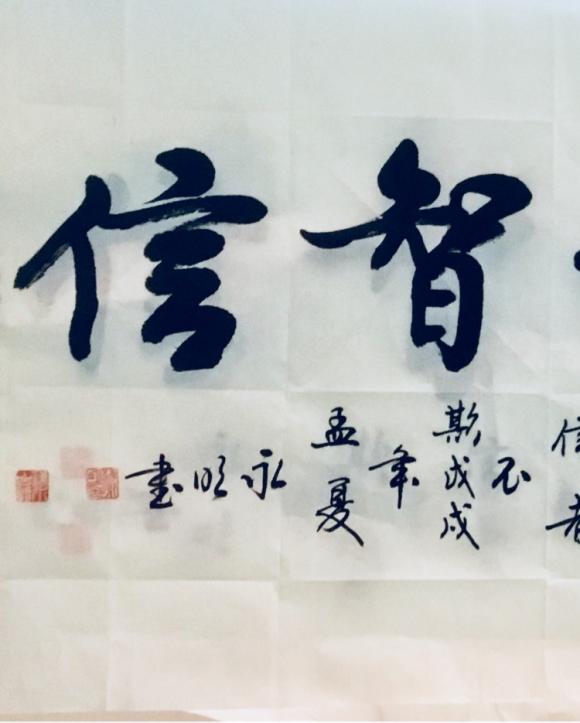 智信
信者
不
斯戊戌
年
孟夏
永明書